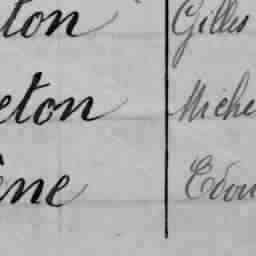 ton Gilles
eton Miche
ène Edou